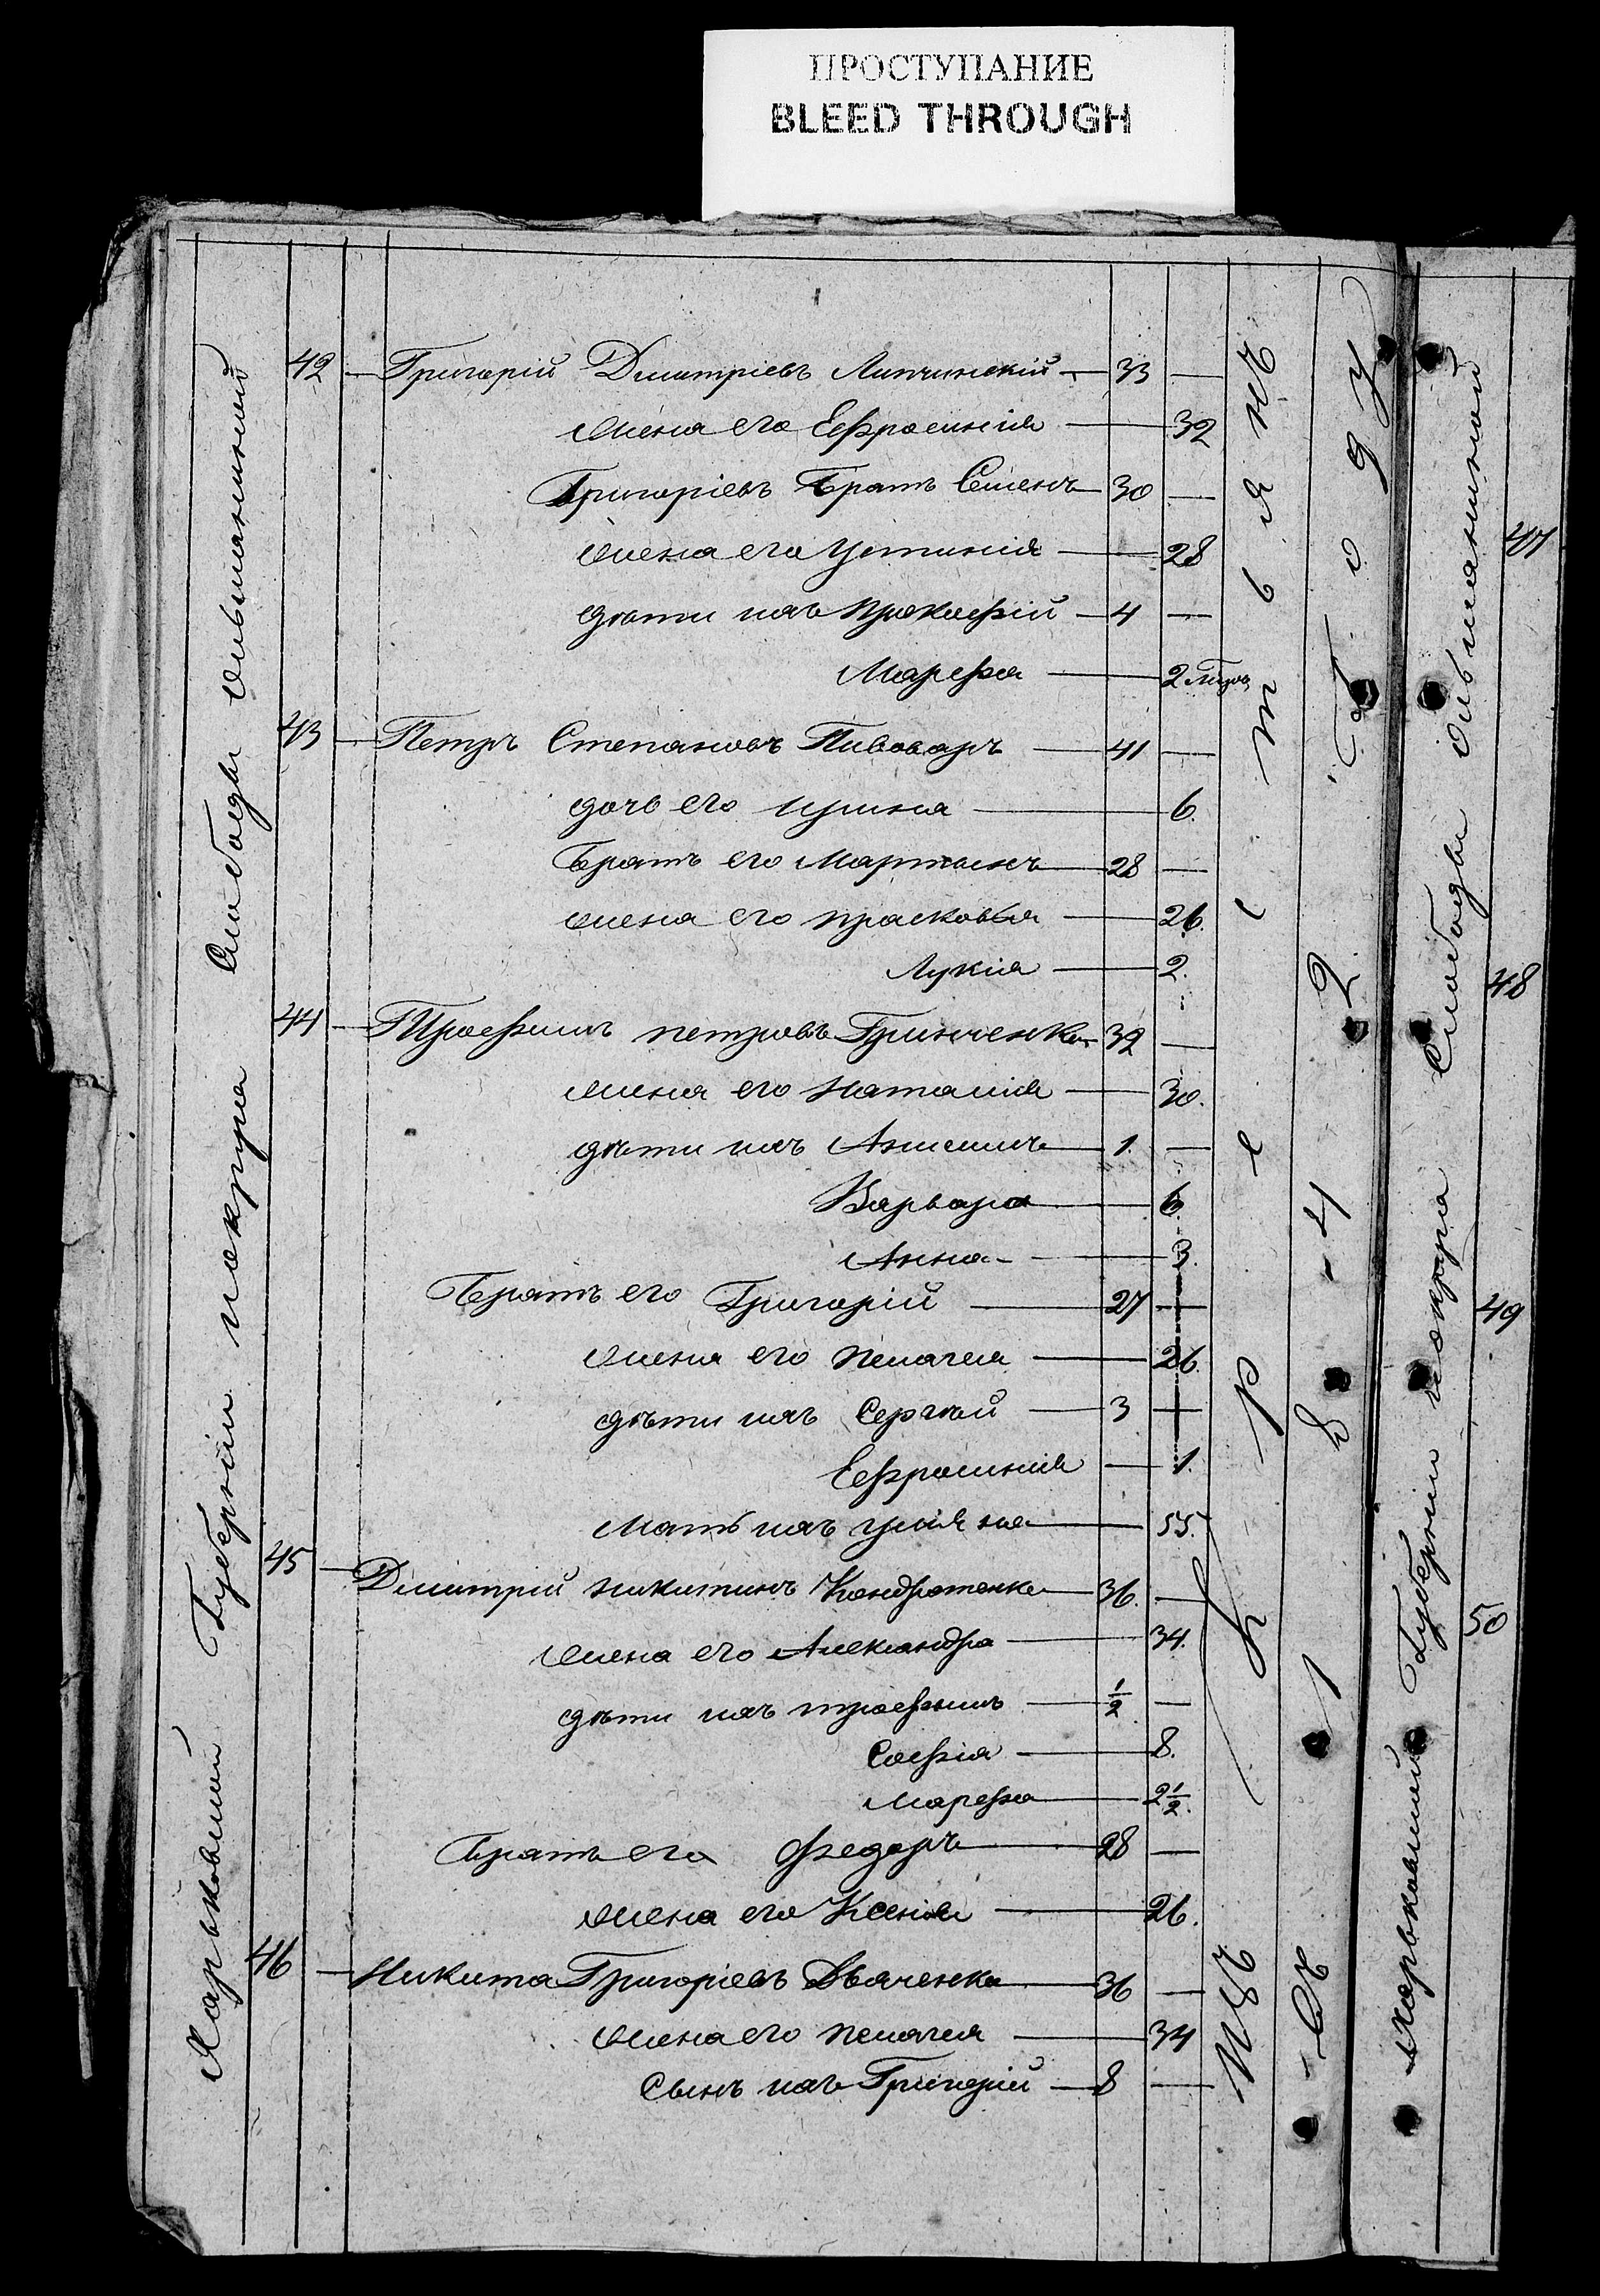 ПРОСТУПАНИЕ
BLEED THROUGH
Харьковской Губерніи Слободы
42 — Григорій Дмитріевъ Липчинскій — 33 —
жена его Ефросинія — 32
Григоріевъ братъ Семенъ — 30 —
жена его Устинія — 28
дѣти ихъ Прокофій — 4 —
Марефа — 2
43 — Петръ Степановъ Пивоваръ — 41 —
дочь его Ирина — 6.
Братъ его Мартынъ — 28 —
жена его Прасковья — 26.
Лукія — 2.
44 — Трофимъ Петровъ Гринченко — 32 —
жена его Наталія — 30.
дѣти ихъ Анисимъ — 1. —
Варвара — 6.
Анна — 3.
Братъ его Григорій — 27 —
жена его Пелагея — 26.
дѣти ихъ Сергѣй — 3 —
Ефросинія — 1.
Мать ихъ Уліяна — 55.
45 — Дмитрій Никитинъ Кондратенко — 36. —
жена его Александра — 34.
дѣти ихъ Трофимъ — 1/2 —
Софія — 8.
Марефа — 2 1/2.
Братъ его Федоръ — 28 —
жена его Ксенія — 26.
46 — Никита Григорьевъ Дьяченко — 36 —
жена его Пелагея — 34
Сынъ ихъ Григорій — 8 —
Изъ крестьянъ
Въ 1842 году
Харьковской Губерніи Слободы
47
48
49
50